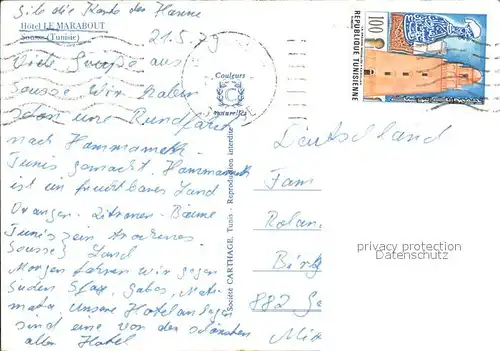 Gib die Karte der Hanne
Hôtel LE MARABOUT
Sousse (Tunisie)
21.5.79
Viele Grüße aus
Sousse Wir haben
schon eine Rundfahrt
nach Hammameth
Tunis gemacht. Hammameth
ist ein fruchtbares Land
Orangen-Zitronen-Bäume
Tunis ein trockenes
Sousse Land
Morgen fahren wir gegen
Süden Sfax, Gabes, Mat-
mata, unsere Hotelanlagen
sind eine von den schönsten
allen Hotel
Couleurs
C
naturelles
Société CARTHAGE, Tunis - Reproduction interdite
100
REPUBLIQUE TUNISIENNE
Deutschland
Fam
Rolan
Birk
882 Ge
Mitt
privacy protection
Datenschutz